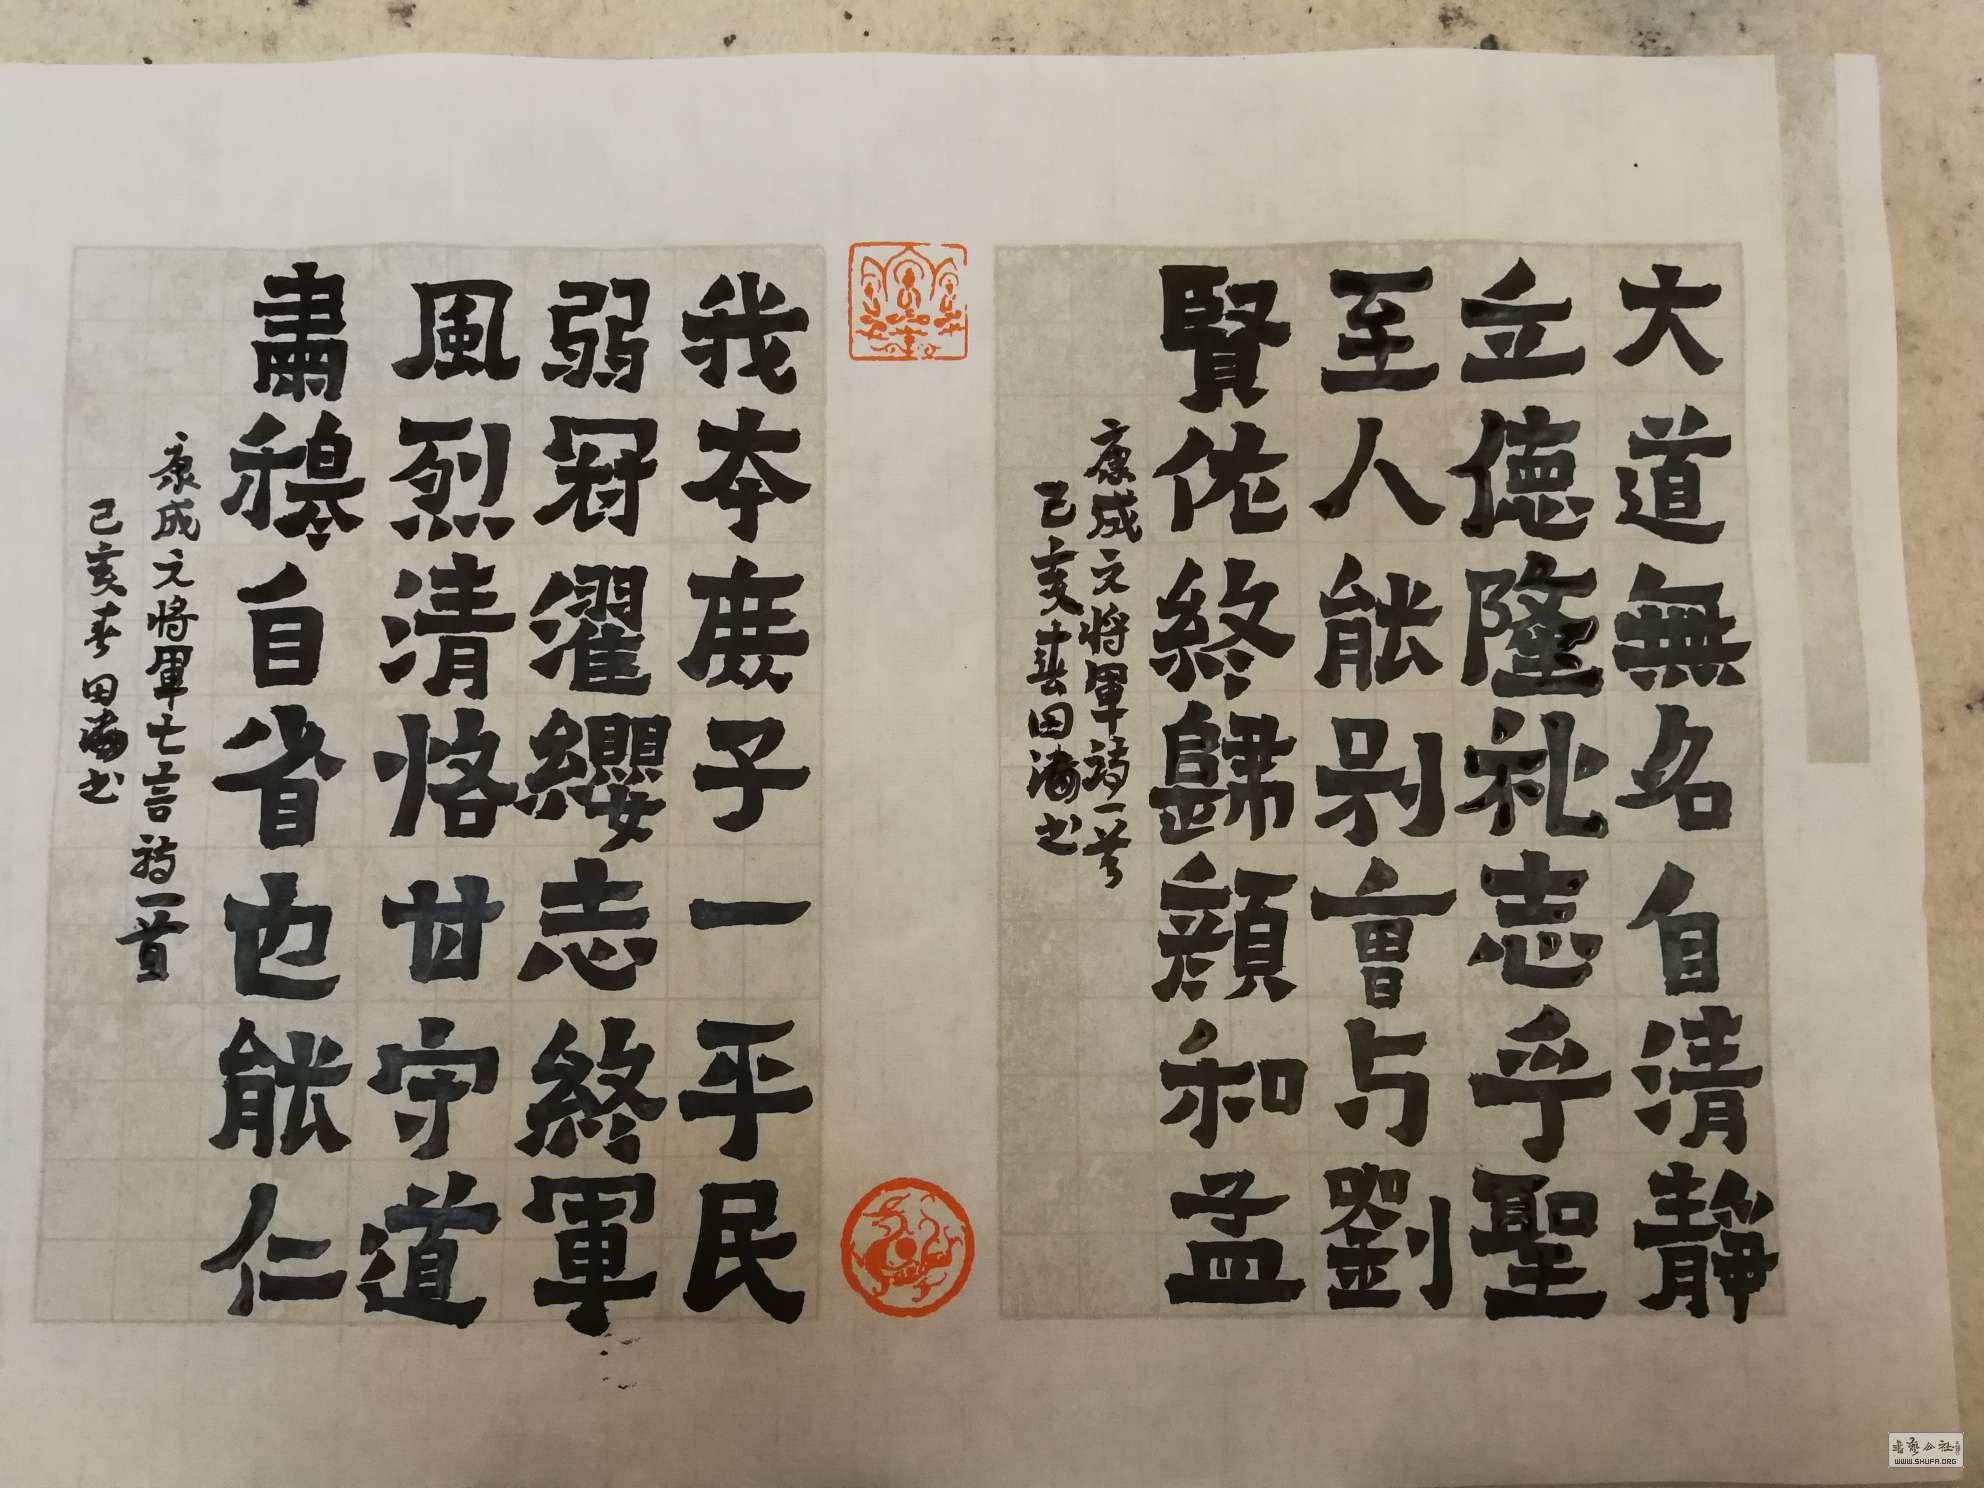 大道無名自清靜
立德隆礼志乎聖
至人能別曹与劉
賢佐終歸顏和孟
康成文将軍詩一首
己亥春田海书
我本庶子一平民
弱冠濯纓志終軍
風烈清恪甘守道
肅穆自省也能仁
康成文将軍七言詩一首
己亥春田海书
書藝公社
WWW.SHUFA.ORG